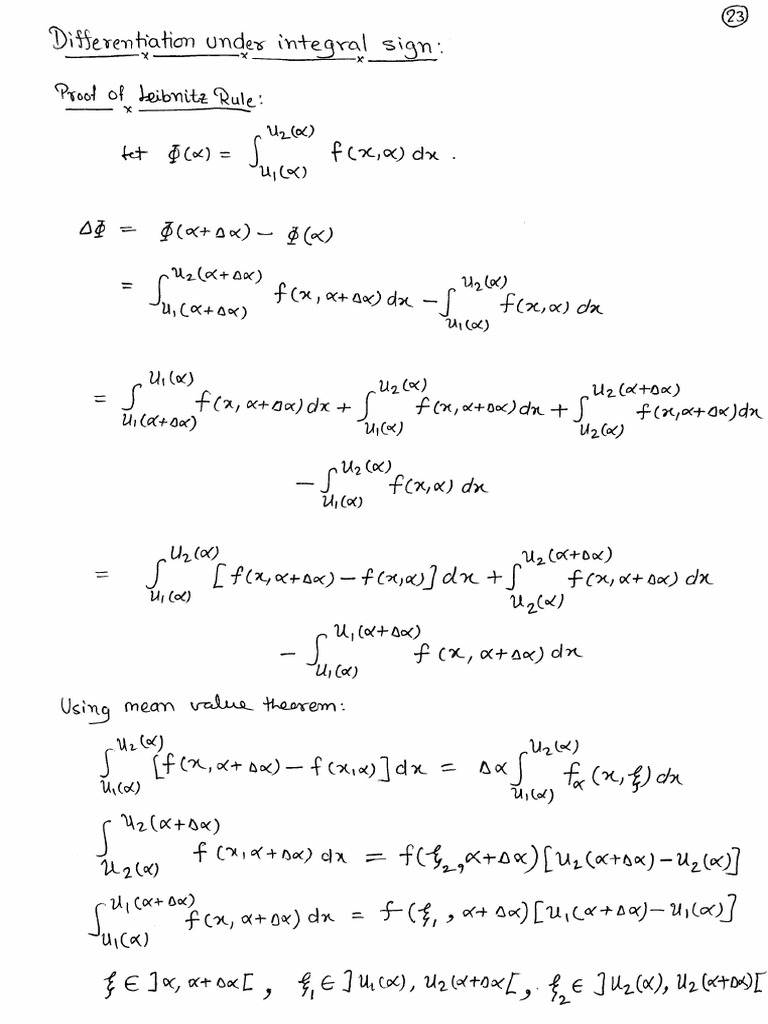 23
Differentiation under integral sign:
Proof of Leibnitz Rule:
Let Φ(α) = ∫_{u₁(α)}^{u₂(α)} f(x,α) dx .
ΔΦ = Φ(α+Δα) – Φ(α)
= ∫_{u₁(α+Δα)}^{u₂(α+Δα)} f(x, α+Δα) dx – ∫_{u₁(α)}^{u₂(α)} f(x,α) dx
= ∫_{u₁(α+Δα)}^{u₁(α)} f(x, α+Δα) dx + ∫_{u₁(α)}^{u₂(α)} f(x,α+Δα) dx + ∫_{u₂(α)}^{u₂(α+Δα)} f(x,α+Δα) dx
– ∫_{u₁(α)}^{u₂(α)} f(x,α) dx
= ∫_{u₁(α)}^{u₂(α)} [f(x,α+Δα) – f(x,α)] dx + ∫_{u₂(α)}^{u₂(α+Δα)} f(x, α+Δα) dx
– ∫_{u₁(α)}^{u₁(α+Δα)} f(x, α+Δα) dx
Using mean value theorem:
∫_{u₁(α)}^{u₂(α)} [f(x, α+Δα) – f(x,α)] dx = Δα ∫_{u₁(α)}^{u₂(α)} f_α(x, ξ) dx
∫_{u₂(α)}^{u₂(α+Δα)} f(x,α+Δα) dx = f(ξ₂, α+Δα) [u₂(α+Δα) – u₂(α)]
∫_{u₁(α)}^{u₁(α+Δα)} f(x, α+Δα) dx = f(ξ₁, α+Δα) [u₁(α+Δα) – u₁(α)]
ξ ∈ ]α, α+Δα[ , ξ₁ ∈ ]u₁(α), u₂(α+Δα[ , ξ₂ ∈ ]u₂(α), u₂(α+Δα)[